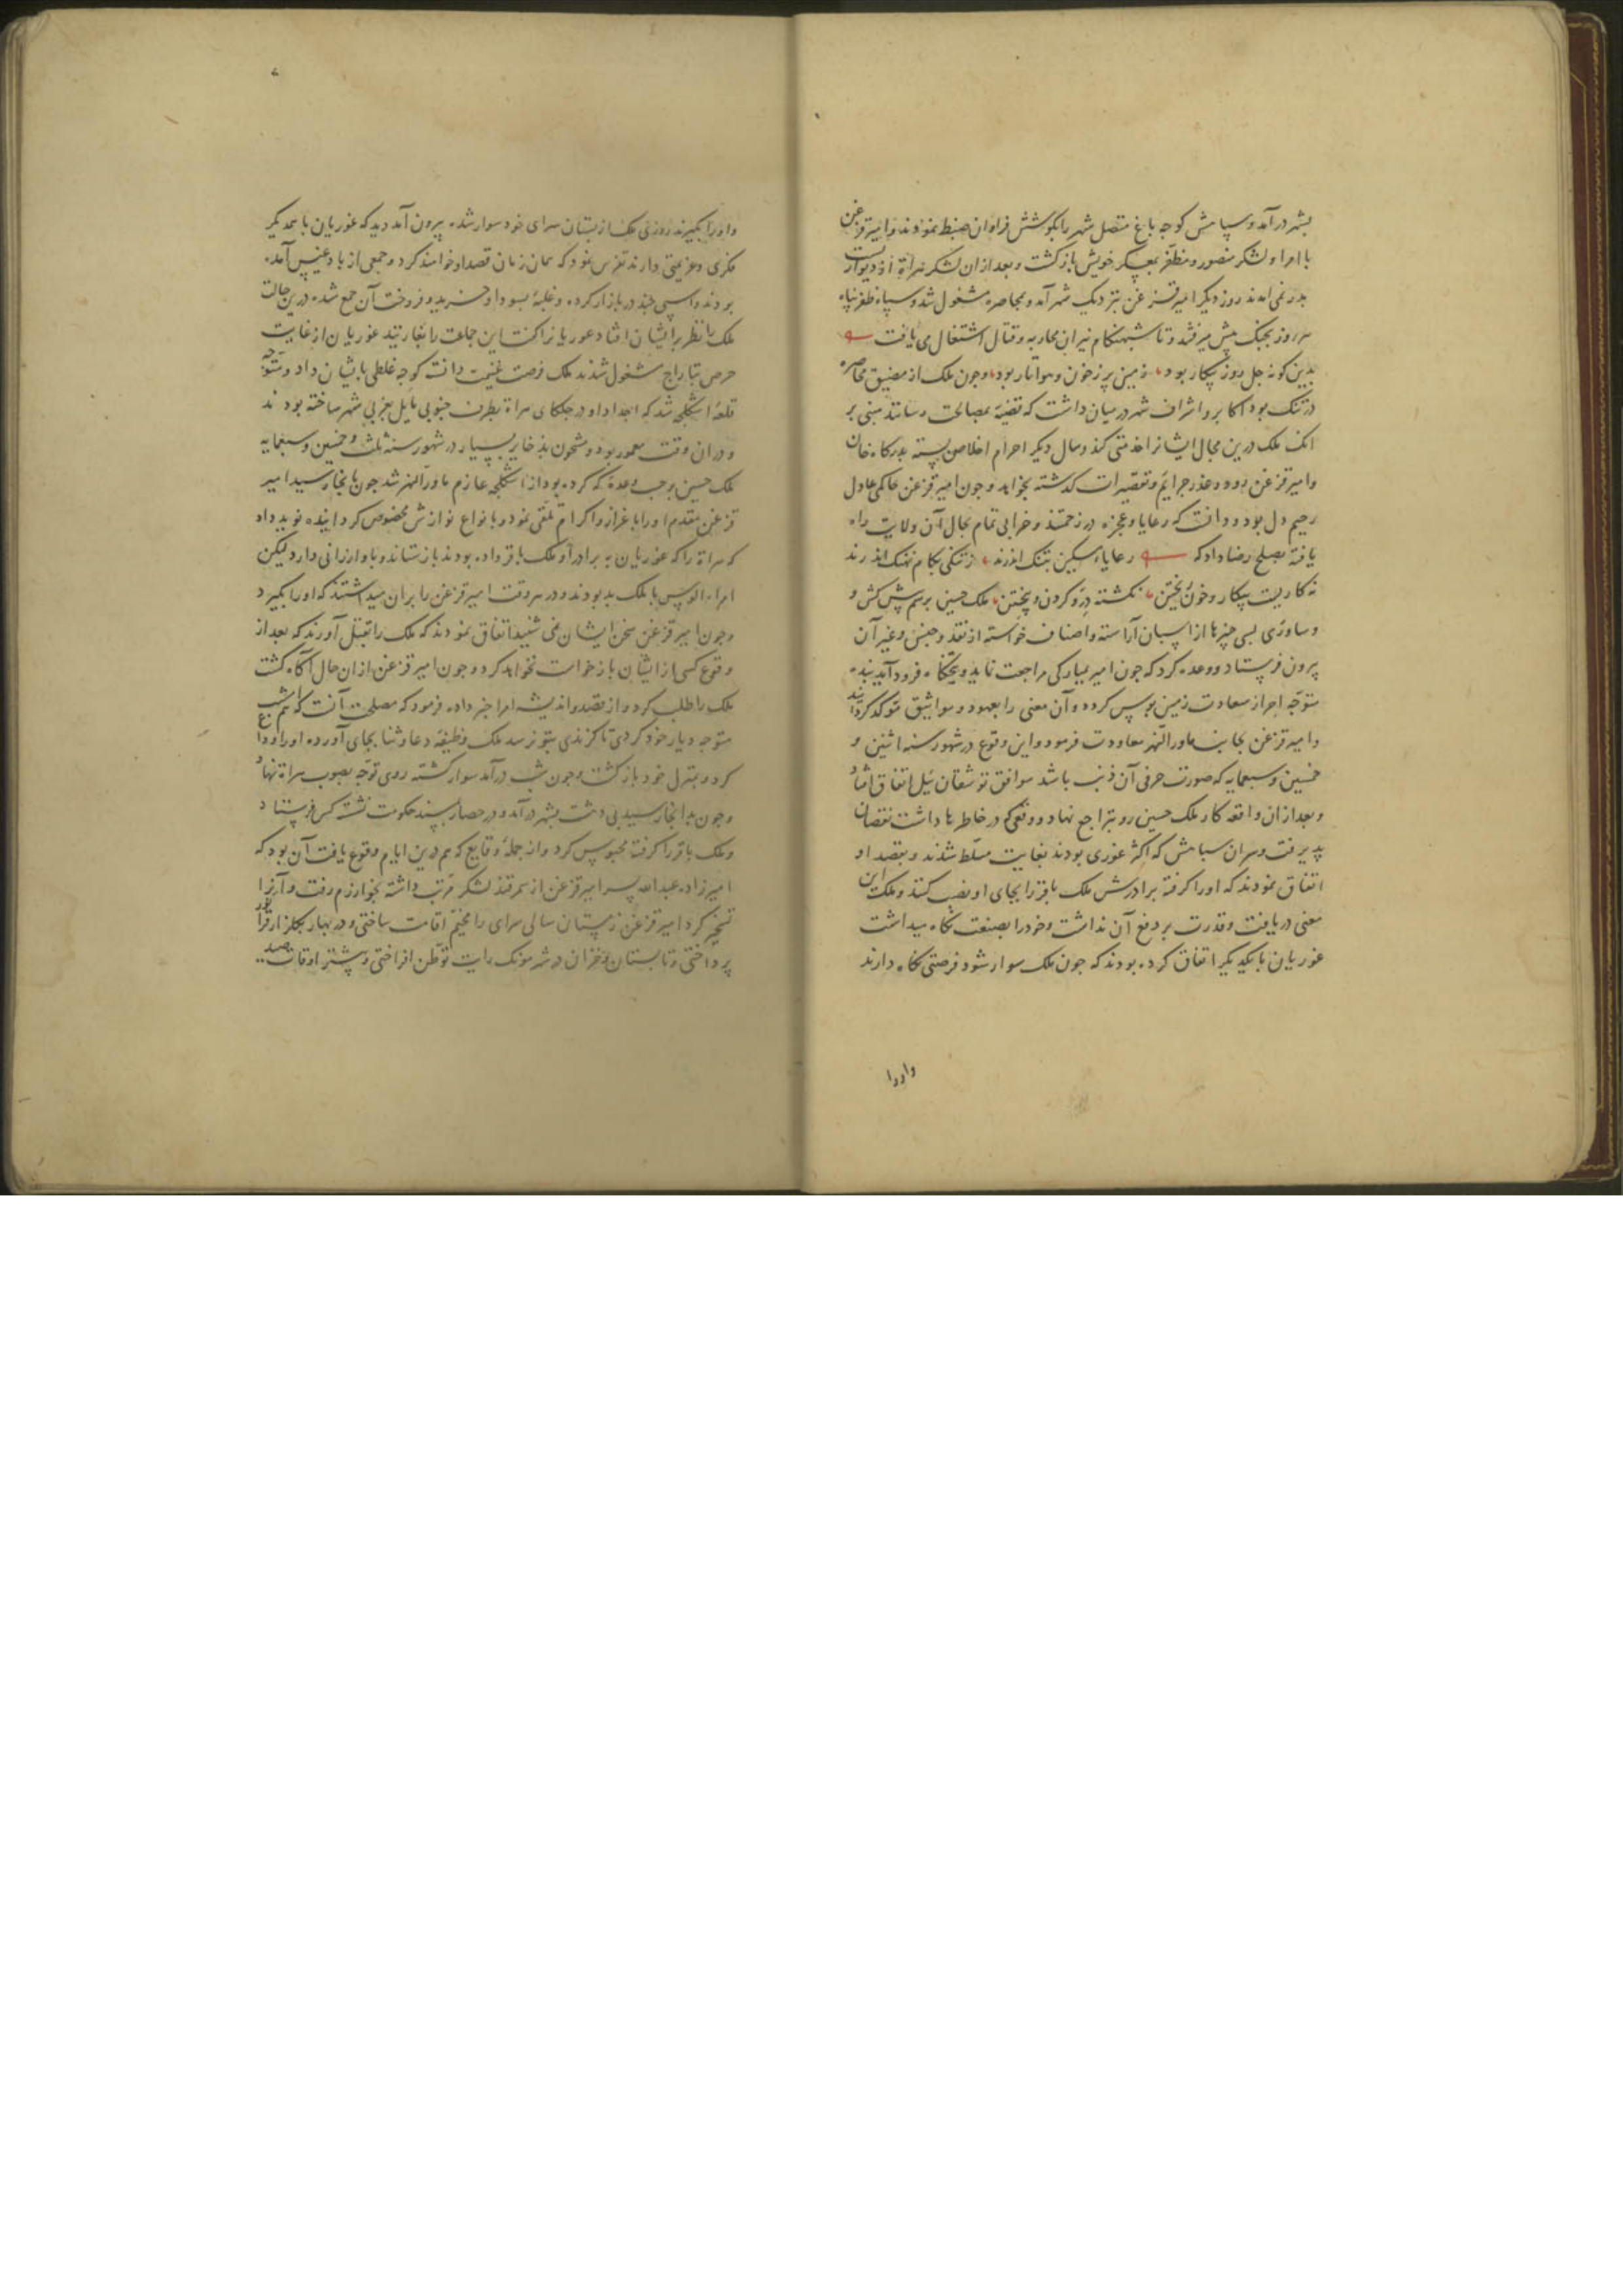 بشهر در آمد و سپاهش کوچه باغ متصل شهر را بکوشش فراوان ضبط نمودند و امیر قزغن
با امرا و لشکر منصور و مظفر بمعسکر خویش بازگشت و بعد از ان لشکر هراة از دیوار بست
بدر نمی امدند روز دیکر امیر قزغن بنزدیک شهر آمد و بمحاصره مشغول شد و سپاه ظفر پناه
هر روز بجنک پیش میرفتند و تا شبهنکام نیران محاربه و قتال اشتغال می یافت
بدین کونه چل روز پیکار بود زمین پر ز خون و هوا تار بود و چون ملک از مضیق محاصره
در تنک بود اکابر و اشراف شهر در میان داشت که قضیه بمصالحت رسانند مبنی بر
انک ملک درین مجال ایشانرا خدمتی کند و سال دیکر احرام اخلاص بسته بدرکاه خان
و امیر قزغن رود و عذر جرایم و تقصیرات کذشته بخواهد و چون امیر قزغن حاکمی عادل
رحیم دل بود و دانست که رعایا و عجزه در زحمتند و خرابی تمام بحال آن ولایت راه
یافته بصلح رضا داد که رعایاء مسکین بتنک اندرند ز تنکی بکام نهنک اندرند
نه کاریست پیکار و خون ریختن نکشته درو کردن و پختن ملک حسین برسم پیش کش و
و ساوری بسی چیزها از اسبان آراسته و اصناف خواسته از نقد و جنس و غیر آن
بیرون فرستاد و وعده کرد که چون امیر بمبارکی مراجعت نماید و بتختکاه فرود آید بنده
متوجه احراز سعادت زمین بوس کردد و آن معنی را بعهود و مواثیق موکد کردانید
و امیر قزغن بجانب ماوراالنهر معاودت فرمود و این وقوع در شهور سنه اثنین و
خمسین و سبعمایه که صورت حرفی آن ذنب باشد موافق توشقان ئیل اتفاق افتاد
و بعد از ان واقعه کار ملک حسین رو بتراجع نهاد و وقعی که در خاطرها داشت نقصان
پذیرفت و سران سپاهش که اکثر غوری بودند بغایت مسلط شدند و بقصد او
اتفاق نمودند که او را کرفته برادرش ملک باقر را بجای او نصب کنند و ملک این
معنی دریافت و قدرت بر دفع آن نداشت و خود را بصنعت نکاه میداشت
غوریان با یکدیکر اتفاق کرده بودند که چون ملک سوار شود فرصتی نکاه دارند
و او را
و او را بکیرند روزی ملک از بستان سرای خود سوار شده بیرون آمد دید که غوریان با همدیکر
مکری و عزیمتی دارند تفرس نمود که همان زمان قصد او خواهند کرد و جمعی از بادغیس آمده
بودند و اسبی چند در بازار کرده و غلبهٔ بسودا و خرید و فروخت آن جمع شده درین حالت
ملک را نظر بر ایشان افتاد غوریانرا کفت این جماعت را بغارتید غوریان از غایت
حرص بتاراج مشغول شدند ملک فرصت غنیمت دانسته کوچه غلطی بایشان داد و متوجه
قلعهٔ اشکلجه شد که اجداد او در جلکای هراة بطرف جنوبی مایل بغربی شهر ساخته بودند
و در ان وقت معمور بود و مشحون بذخایر بسیار در شهور سنهٔ ثلث و خمسین و سبعمایه
ملک حسین بموجب وعدهٔ که کرده بود از اشکلجه عازم ماوراالنهر شد چون بانجا رسید امیر
قزغن مقدم او را باعزاز و اکرام تلقی نمود و بانواع نوازش مخصوص کردانیده نوید داد
که هراة را که غوریان به برادر او ملک باقر داده بودند باز ستاند و باو ارزانی دارد لیکن
امراء الوس با ملک بد بودند و در هر وقت امیر قزغن را بران میداشتند که او را بکیرد
و چون امیر قزغن سخن ایشان نمی شنید اتفاق نمودند که ملک را بقتل آورند که بعد از
وقوع کسی از ایشان باز خواست نخواهد کرد و چون امیر قزغن از ان حال آکاه کشت
ملک را طلب کرد و از قصد و اندیشه امرا خبر داده فرمود که مصلحت آنست که هم امشب
متوجه دیار خود کردی تا کزندی بتو نرسد ملک وظیفهٔ دعا و ثنا بجای آورده او را وداع
کرد و بمنزل خود بازکشت و چون شب در آمد سوار کشته روی توجه بصوب هراة نهاد
و چون بدانجا رسید بی دهشت بشهر در آمد و در حصار بمسند حکومت نشسته کس فرستاد
و ملک باقر را کرفته محبوس کرد و از جملهٔ وقایع که هم درین ایام وقوع یافت آن بود که
امیرزاده عبدالله پسر امیر قزغن از سمرقند لشکر مرتب داشته بخوارزم رفت و آنرا
تسخیر کرد امیر قزغن زمستان سالی سرای را مخیم اقامت ساختی و در بهار بکلزار قراتور
پرداختی و تابستان و خزان در شهر مونک رایت توطن افراختی و بیشتر اوقات بصید